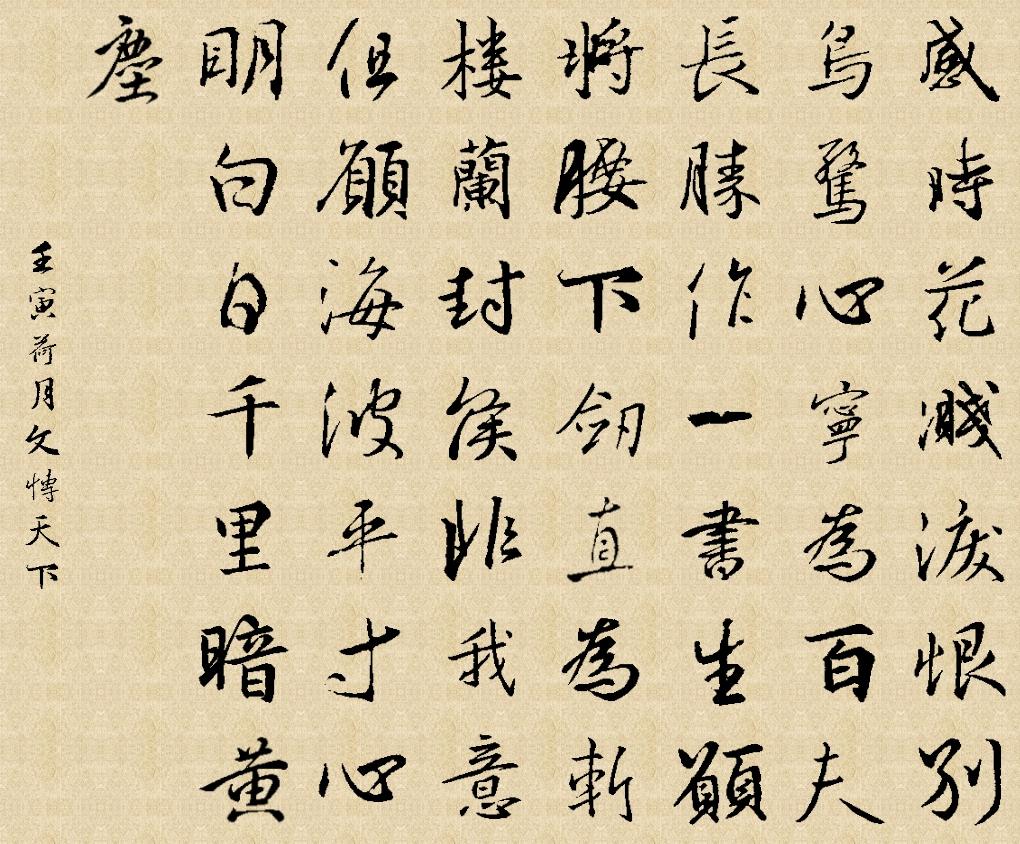 感時花濺淚恨別
鳥驚心寧為百夫
長勝作一書生願
將腰下劍直為斬
樓蘭封侯非我意
但願海波平寸心
明白日千里暗黃
塵
壬寅荷月文愽天下